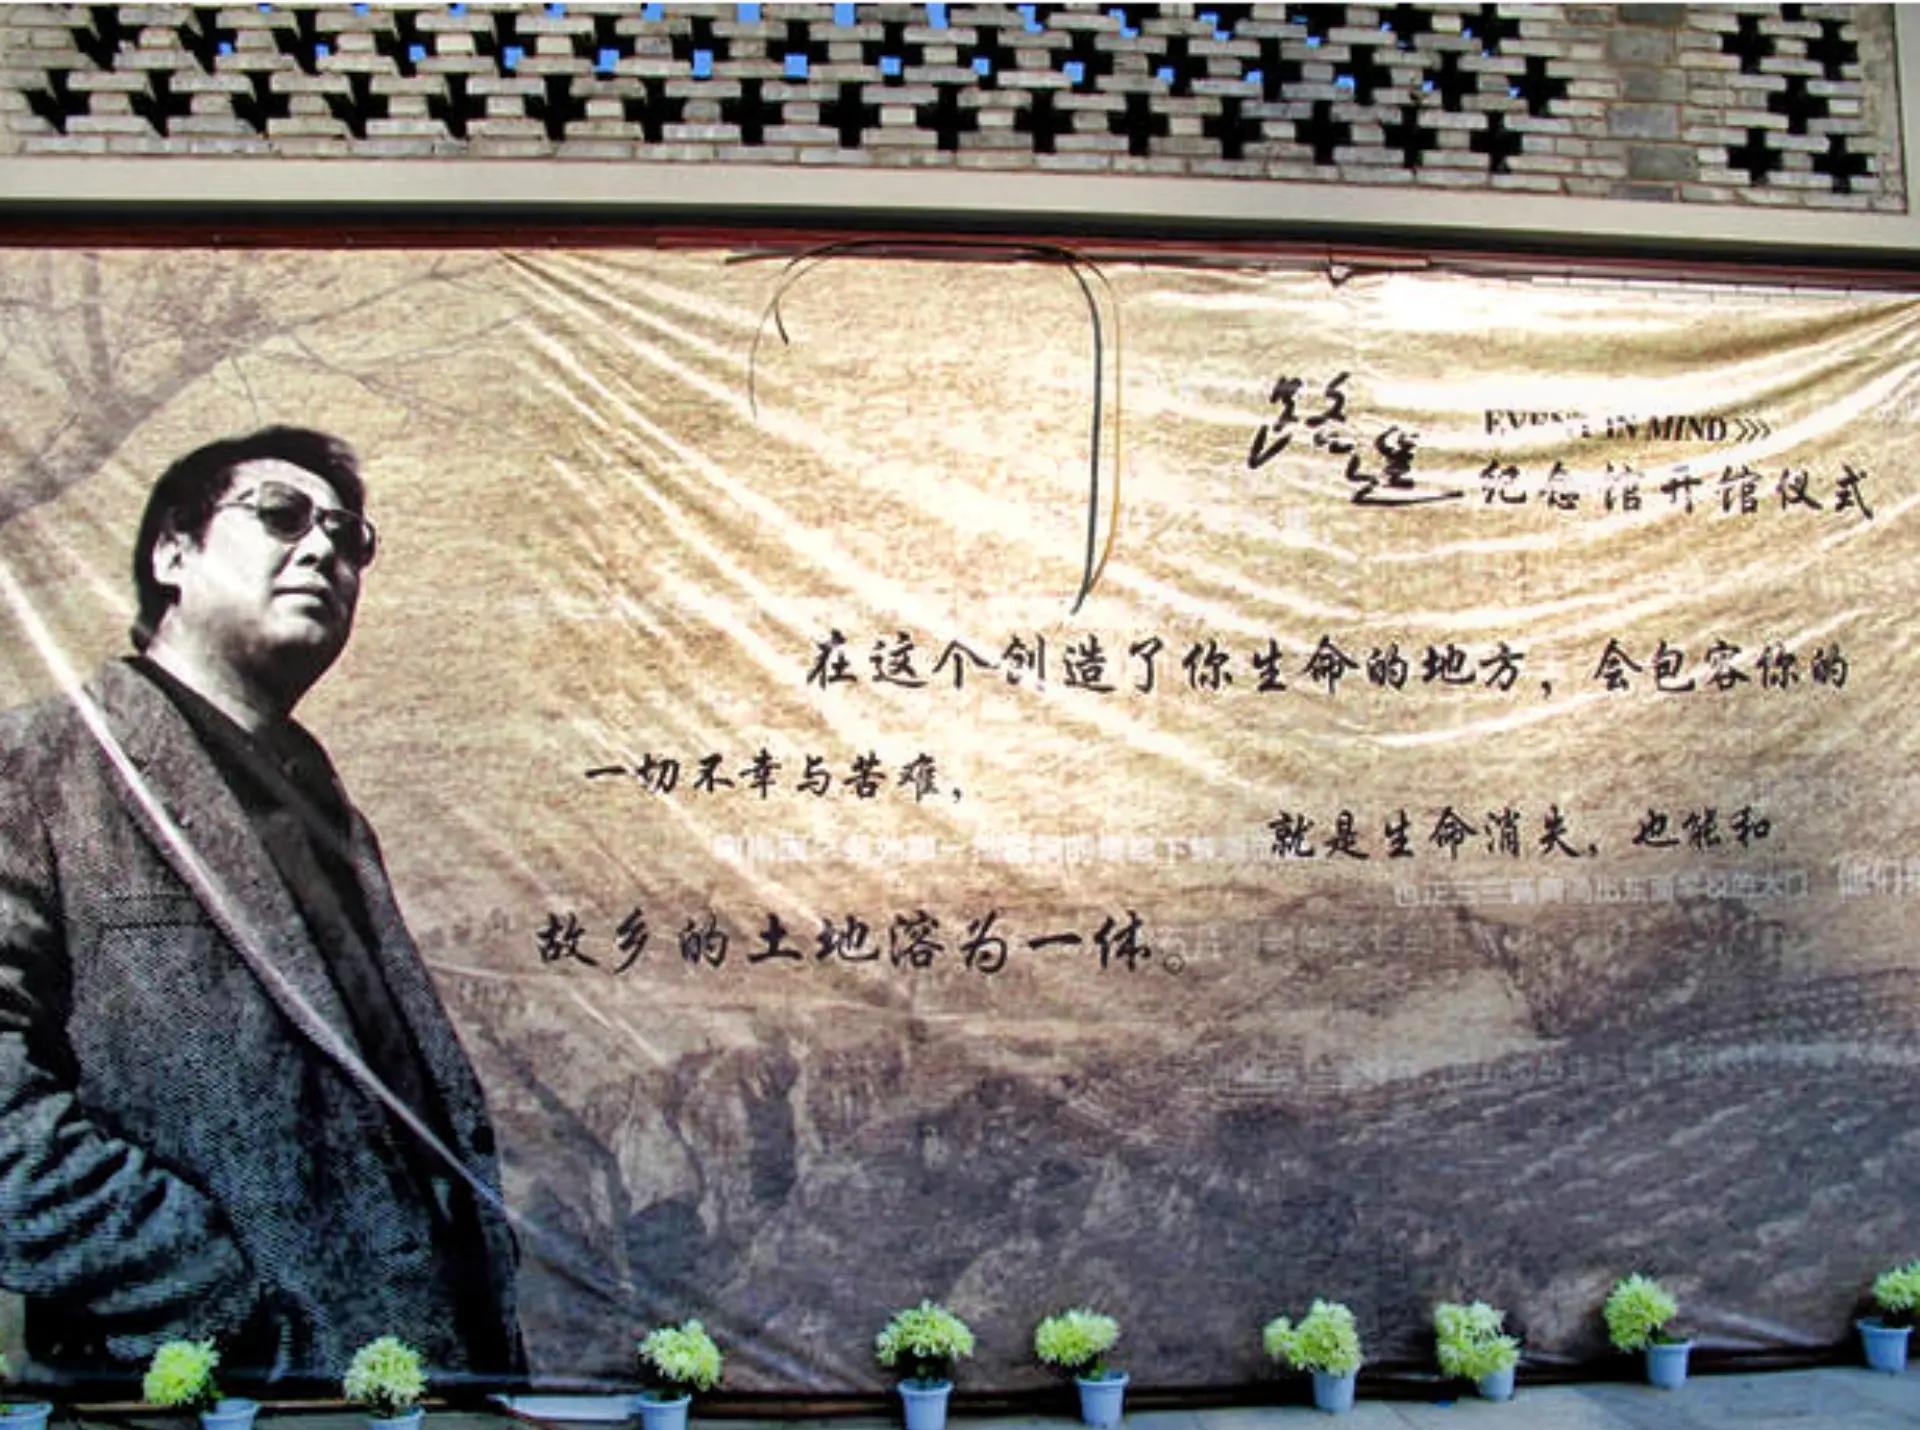 路遥
EVENT IN MIND
纪念馆开馆仪式
在这个创造了你生命的地方，会包容你的
一切不幸与苦难，
就是生命消失，也能和
故乡的土地溶为一体。